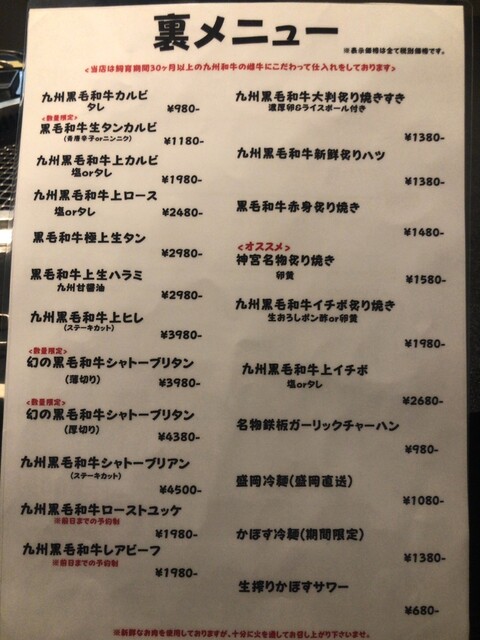 裏メニュー
※表示価格は全て税別価格です。
<当店は飼育期間30ヶ月以上の九州和牛の雌牛にこだわって仕入れをしております>
九州黒毛和牛カルビ
タレ
¥980-
<数量限定>
黒毛和牛生タンカルビ
(青唐辛子orニンニク)
¥1180-
九州黒毛和牛上カルビ
塩orタレ
¥1980-
九州黒毛和牛上ロース
塩orタレ
¥2480-
黒毛和牛極上生タン
¥2980-
黒毛和牛上生ハラミ
九州甘醤油
¥2980-
九州黒毛和牛上ヒレ
(ステーキカット)
¥3980-
<数量限定>
幻の黒毛和牛シャトーブリタン
(薄切り)
¥3980-
<数量限定>
幻の黒毛和牛シャトーブリタン
(厚切り)
¥4380-
九州黒毛和牛シャトーブリアン
(ステーキカット)
¥4500-
九州黒毛和牛ローストユッケ
※前日までの予約制
¥1980-
九州黒毛和牛レアビーフ
※前日までの予約制
¥1980-
九州黒毛和牛大判炙り焼きすき
濃厚卵&ライスボール付き
¥1380-
九州黒毛和牛新鮮炙りハツ
¥1380-
黒毛和牛赤身炙り焼き
¥1480-
<オススメ>
神宮名物炙り焼き
卵黄
¥1580-
九州黒毛和牛イチボ炙り焼き
生おろしポン酢or卵黄
¥1980-
九州黒毛和牛上イチボ
塩orタレ
¥2680-
名物鉄板ガーリックチャーハン
¥980-
盛岡冷麺(盛岡直送)
¥1080-
かぼす冷麺(期間限定)
¥1380-
生搾りかぼすサワー
¥680-
※新鮮なお肉を使用しておりますが、十分に火を通してお召し上がり下さいませ。